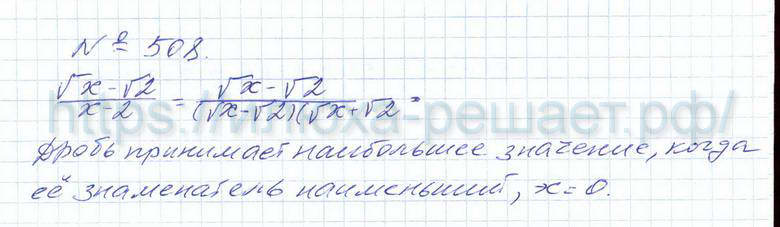 № 508.
√x - √2 / x - 2 = √x - √2 / (√x - √2)(√x + √2 .
Дробь принимает наибольшее значение, когда
её знаменатель наименьший, x = 0.